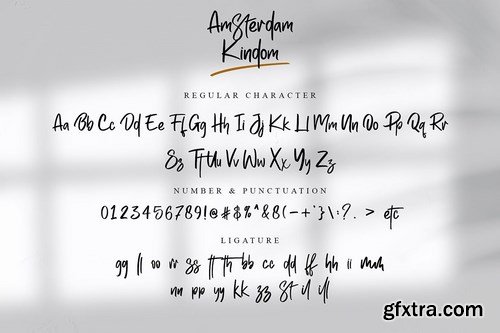 Amsterdam
Kindom
REGULAR CHARACTER
Aa Bb Cc Dd Ee Ff Gg Hh Ii Jj Kk Ll Mm Nn Oo Pp Qq Rr
Ss Tt Uu Vv Ww Xx Yy Zz
NUMBER & PUNCTUATION
0123456789!@#$%^&8(-+'}\:?. > etc
LIGATURE
gg ll oo rr ss tt th bb cc dd ff hh ii mm
nn pp yy kk zz st il ull
gfxtra.com